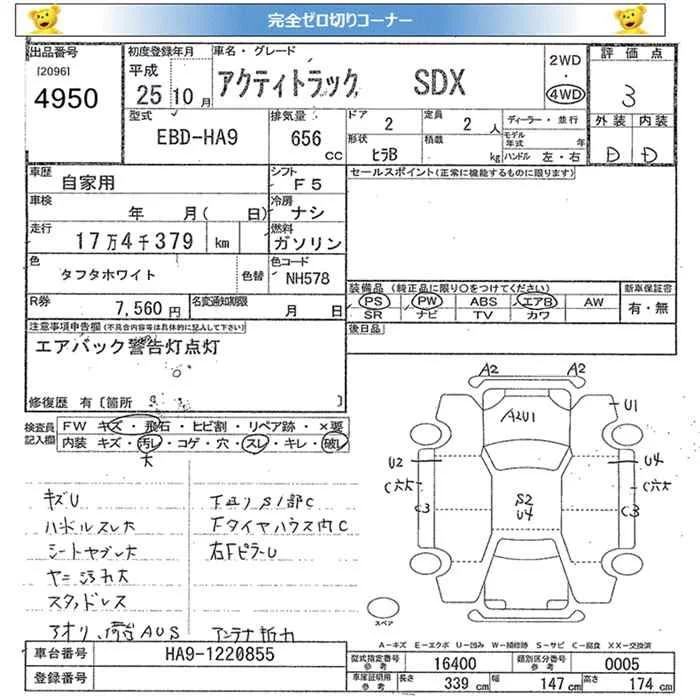 完全ゼロ切りコーナー
出品番号 初度登録年月 車名・グレード 評価点
[2096] 平成 2WD
4950 25年10月 アクティトラック SDX ・ 4WD 3
型式 排気量 ドア 2 定員 2人 ディーラー・並行 外装 内装
EBD-HA9 656 CC 形状 ヒラB 積載 kg モデル年式 年 ハンドル 左・右 D D
車歴 自家用 シフト F5 セールスポイント(正常に機能するものに限ります)
車検 年 月( 日) 冷房 ナシ
走行 17万4千379 km 燃料 ガソリン
色 タフタホワイト 色替 色コード NH578
装備品(純正品に限り○をつけてください) 新車保証書
R券 7,560円 名変通知期限 月 日 PS PW ABS エアB AW 有・無
SR ナビ TV カワ
注意事項申告欄(不具合内容等は具体的に記入して下さい) 後日品
エアバック警告灯点灯
修復歴 有〔箇所 〕
検査員記入欄 FW キズ・飛石・ヒビ割・リペア跡・×要
内装 キズ・汚レ・コゲ・穴・スレ・キレ・破レ
大
A2 A2
A2U1 U1
U2 U4
C穴大 C穴大
C3 S2 U4 C3
スペア
キズU 下廻りS1部C
ハンドルスレ大 Fタイヤハウス内C
シートヤブレ大 右FピラーU
ヤニ汚れ大
スタッドレス
アオリ、荷台AUS アンテナ折力
A=キズ E=エクボ U=凹み W=補修跡 S=サビ C=腐食 XX=交換済
車台番号 HA9-1220855 型式指定番号 参考 16400 類別区分番号 参考 0005
登録番号 車庫証明用 参考 長さ 339 cm 幅 147 cm 高さ 174 cm